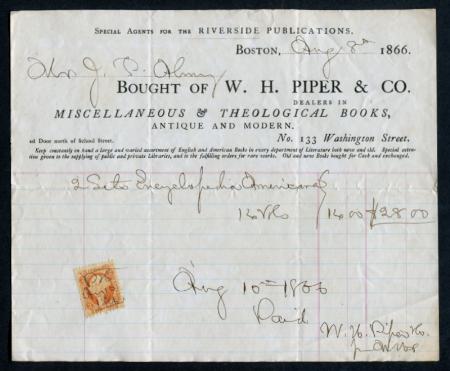 Special Agents for the RIVERSIDE PUBLICATIONS.
Boston, Aug 8th 1866.
Mr J. P. Almy
Bought of W. H. PIPER & CO.
DEALERS IN
MISCELLANEOUS & THEOLOGICAL BOOKS,
ANTIQUE AND MODERN,
2d Door north of School Street. No. 133 Washington Street.
Keep constantly on hand a large and varied assortment of English and American Books in every department of Literature both new and old. Special atten-
tion given to the supplying of public and private Libraries, and in the fulfilling orders for rare works. Old and new Books bought for Cash and exchanged.
2 Sets Encyclopedia Americana
14 Vols 14.00 $28.00
Aug 10th 1866
Paid
W. H. Piper & Co.